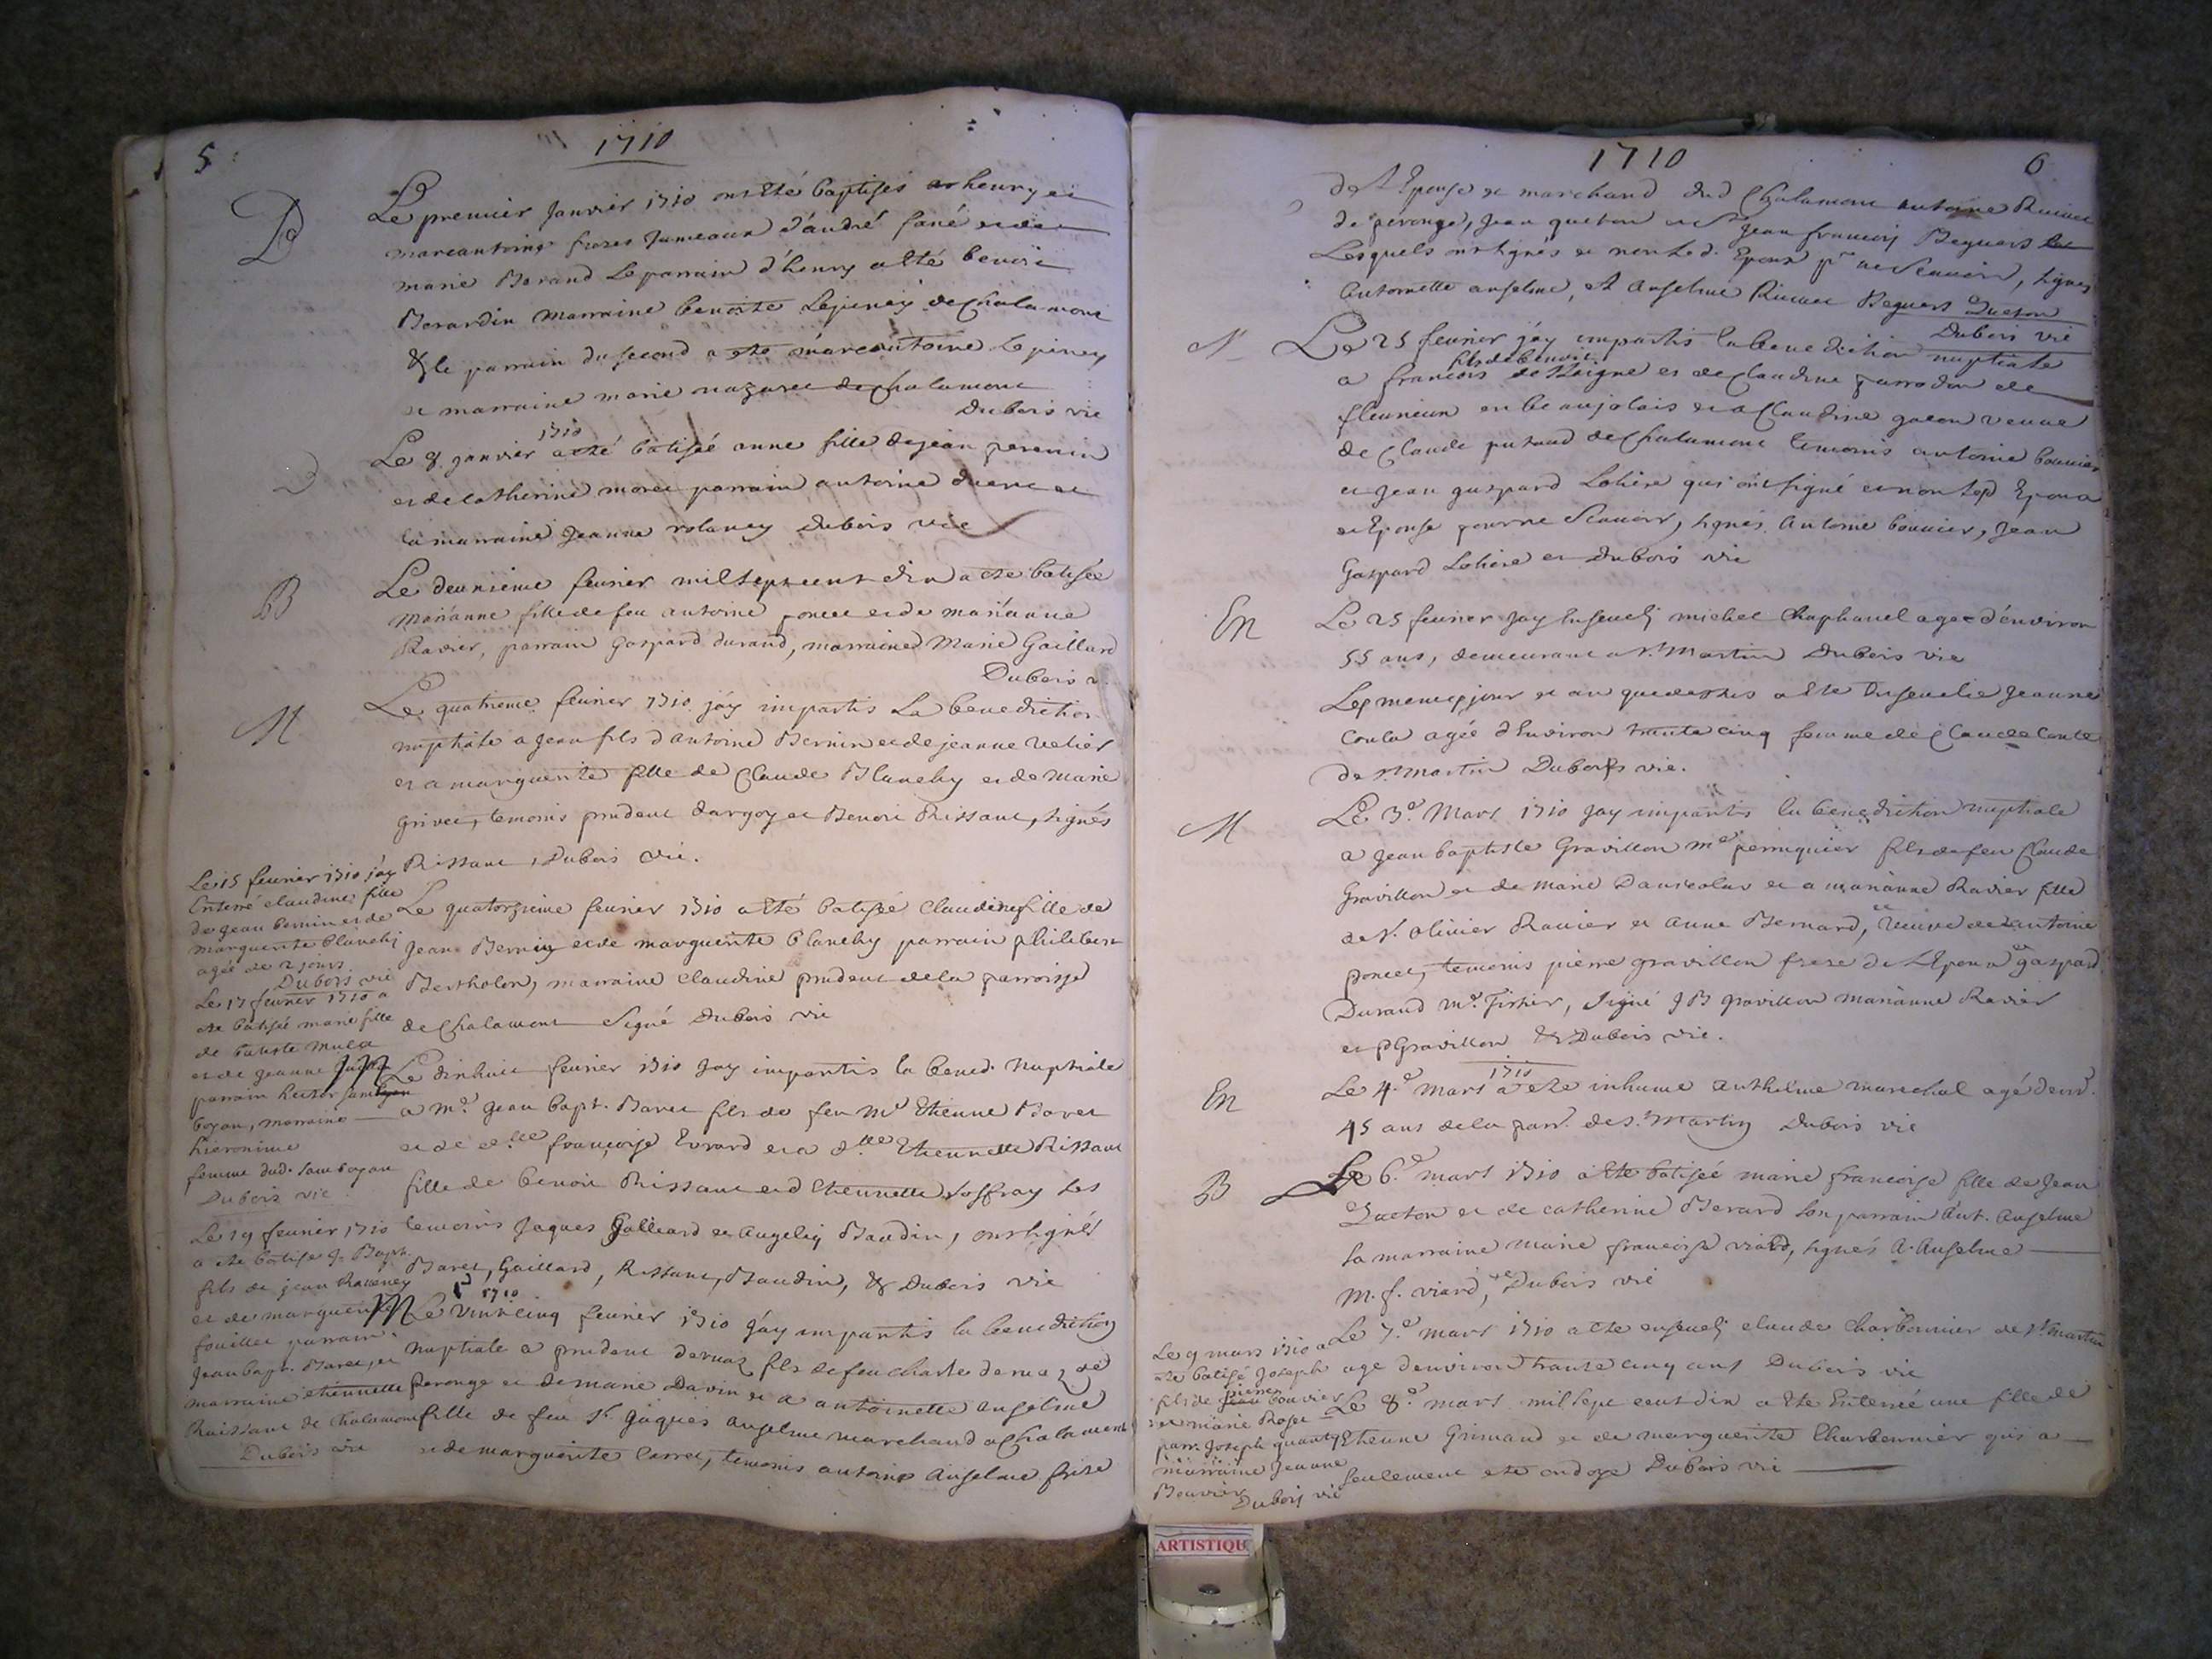 5
1710
B
Le premier Janvier 1710 ont Eté baptisés henry et
marcantoine freres Jumeaux d'andré fané et de
marie Berand Le parrain d'henry a Eté benoit
Berardin Marraine benoite Lepiney de Chalamont
& le parrain du second a ete marcantoine Lepiney
et marraine marie nazaret de Chalamont
Dubois vic
1710
Le 8 janvier a eté batisée anne fille de jean perenin
et de catherine morel parrain antoine
la marraine Jeanne Dubois vic
B
Le deuxieme feurier mil sept cent dix a ete batisée
Marianne fille de feu antoine poncet et de marianne
Ravier, parrain Gaspard durand, marraine Marie Gaillard
Dubois v.
M
Le quatrieme feurier 1710 j'ay impartis La benediction
nuptiale a Jean fils d'antoine Bernin et de jeanne Velier
et a marguerite fille de Claude Blanchy et de Marie
Grivet, temoins prudent dargoy et Benoit Rissant, signés
Rissant, Dubois vic.
Le 15 feurier 1710 j'ay
Enterré claudine fille
de jean bernin et de
marguerite blanchy
agée de 2 jours
Dubois vic
Le quatorzieme feurier 1710 a Eté batisée Claudine fille de
Jean Bernin et de marguerite blanchy parrain philibert
Bertholon, marraine Claudine prudent de la parroisse
de Chalamont Signé Dubois vic
Le 17 feurier 1710 a
ete batisée marie fille
de batiste
et de jeanne
parrain hector
boyan, marraine
hieronime
femme dud. samboyan
Dubois vic
M
Le dixhuit feurier 1710 Jay impartis la bened. Nuptiale
a Mr. Jean bapt. Baret fils de feu Mr Etienne Baret
et de dlle francoise Evrard et a dlle Etiennette Rissant
fille de benoit Rissant et d'Etiennette Joffray Les
temoins Jaques Galliard et Baudin, ont signés
Baret, Gaillard, Rissant, Baudin, & Dubois vic
Le 19 feurier 1710
a ete batisé J. Bapt.
fils de jean
et de marguerite
fouillet parrain
Jean bapt. Baret, et
marraine etiennette
Raissant de Chalamont
Dubois vic
1710
M
Le vintcinq feurier 1710 j'ay impartis la benediction
Nuptiale a prudent dervaz fils de feu charle dervaz de
perouge et de marie Davin et a antoinette anselme
fille de feu Sr. Jaques anselme marchand a Chalamont
et de marguerite Carret, temoins antoine Anselme frere
1710
6
de L'Epouse et marchand dud Chalamont antoine
de perouge, jean queton et Sr jean francois Beguers
Lesquels ont signés et non Led. Epoux pr ne scavoir, signés
Antoinette anselme, A Anselme Beguers Queton
Dubois vic
M
Le 25 feurier j'ay impartis la benediction nuptiale
fils de benoit
a francois et de Claudine de
fleurieux en beaujolais et a Claudine veuve
de Claude de Chalamont temoins antoine bouvier
et jean gaspard Lohiere qui ont signé et non Lesd Epoux
et Epouse pour ne scavoir, signés. Antoine bouvier, Jean
Gaspard Lohiere et Dubois vic
En
Le 25 feurier Jay Enseveli michel Chaphanel agee d'environ
55 ans, demeurant a St. Martin Dubois vic
Le meme jour et an que dessus a Ete Ensevelie Jeanne
agée d'Environ trente cinq femme de Claude Conte
de St. martin Dubois vic.
M
Le 3e. Mars 1710 Jay impartis la benediction nuptiale
a jean baptiste Gravillon me perruquier fils de feu Claude
Gravillon et de Marie et a marianne Ravier fille
de Sr. olivier Ravier et anne Bernard, veuve de antoine
poncet, temoins pierre gravillon frere de L'Epoux et gaspard
Durand me. Tissier, signé J B gravillon marianne Ravier
et p Gravillon & Dubois vic.
1710
En
Le 4e. mars a ete inhume anthelme marechal agé denv.
45 ans de la parr. de St. Martin Dubois vic
B
Le 6e. mars 1710 a Ete batisée marie francoise fille de Jean
Queton et de catherine Berard son parrain Ant. Anselme
sa marraine marie francoise viard, signés A. Anselme
M. f. viard, et Dubois vic
Le 7e. mars 1710 a ete enseveli claude Charbonnier de St martin
age denviron trante cinq ans Dubois vic
Le 9 mars 1710 a
ete batisé Joseph
pierre
fils de bouvier
et marie Roset
parr. Joseph
marraine Jeanne
Bouvier
Dubois vic
Le 8e. mars mil sept cent dix a ete Enterré une fille de
Etienne Grimaud et de marguerite Charbonnier qui a
seulement ete ondoye Dubois vic
ARTISTIQU